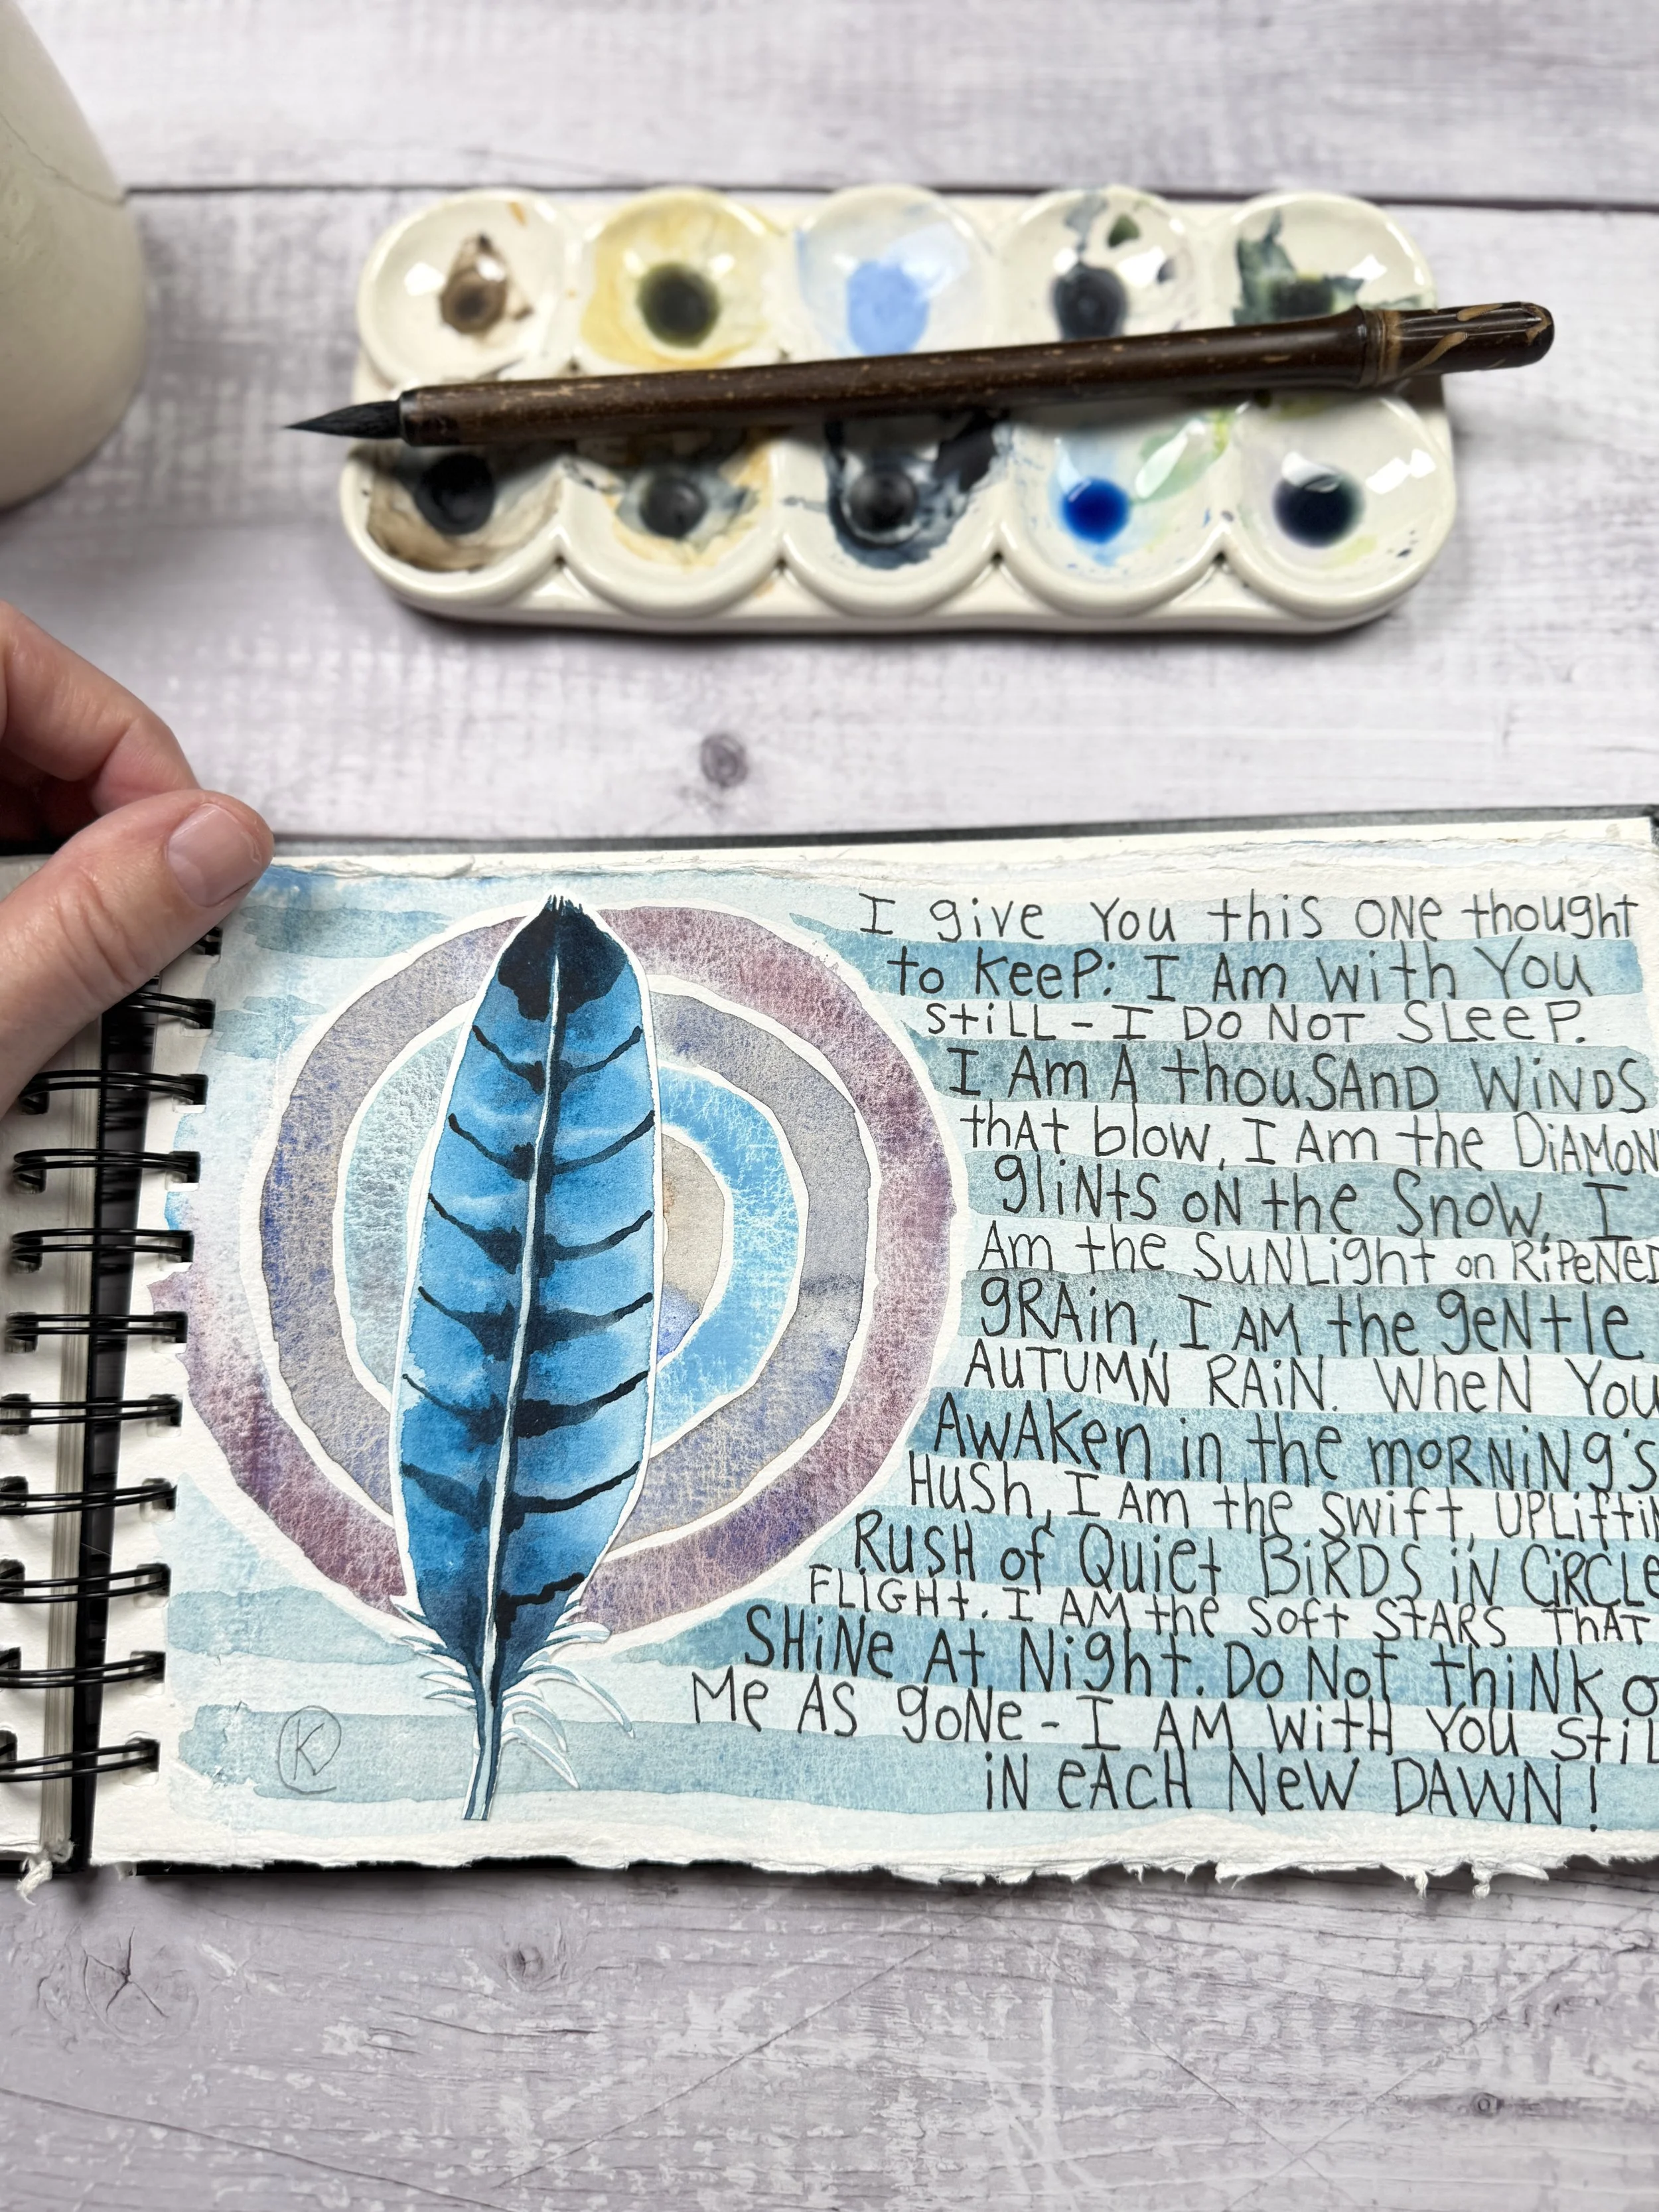 I give You this ONe thought
to KeeP: I Am with You
StiLL - I DO NOT SLeeP.
I Am A thouSAnD WiNDS
thAt blow, I Am the DiAMON
gliNtS oN the SnoW, I
Am the SuNLight on RiPeNeD
gRAin, I AM the geNtle
AUTUMN RAiN. WheN You
AwAKen in the moRNiNg's
HuSh, I Am the Swift, UPLiftiN
RuSH of Quiet BiRDS iN CiRCLe
FLiGHt. I AM the Soft StARS THAT
SHiNe At Night. Do Not thiNK o
Me AS goNe - I AM witH You StiL
iN eACH NeW DAWN!
K